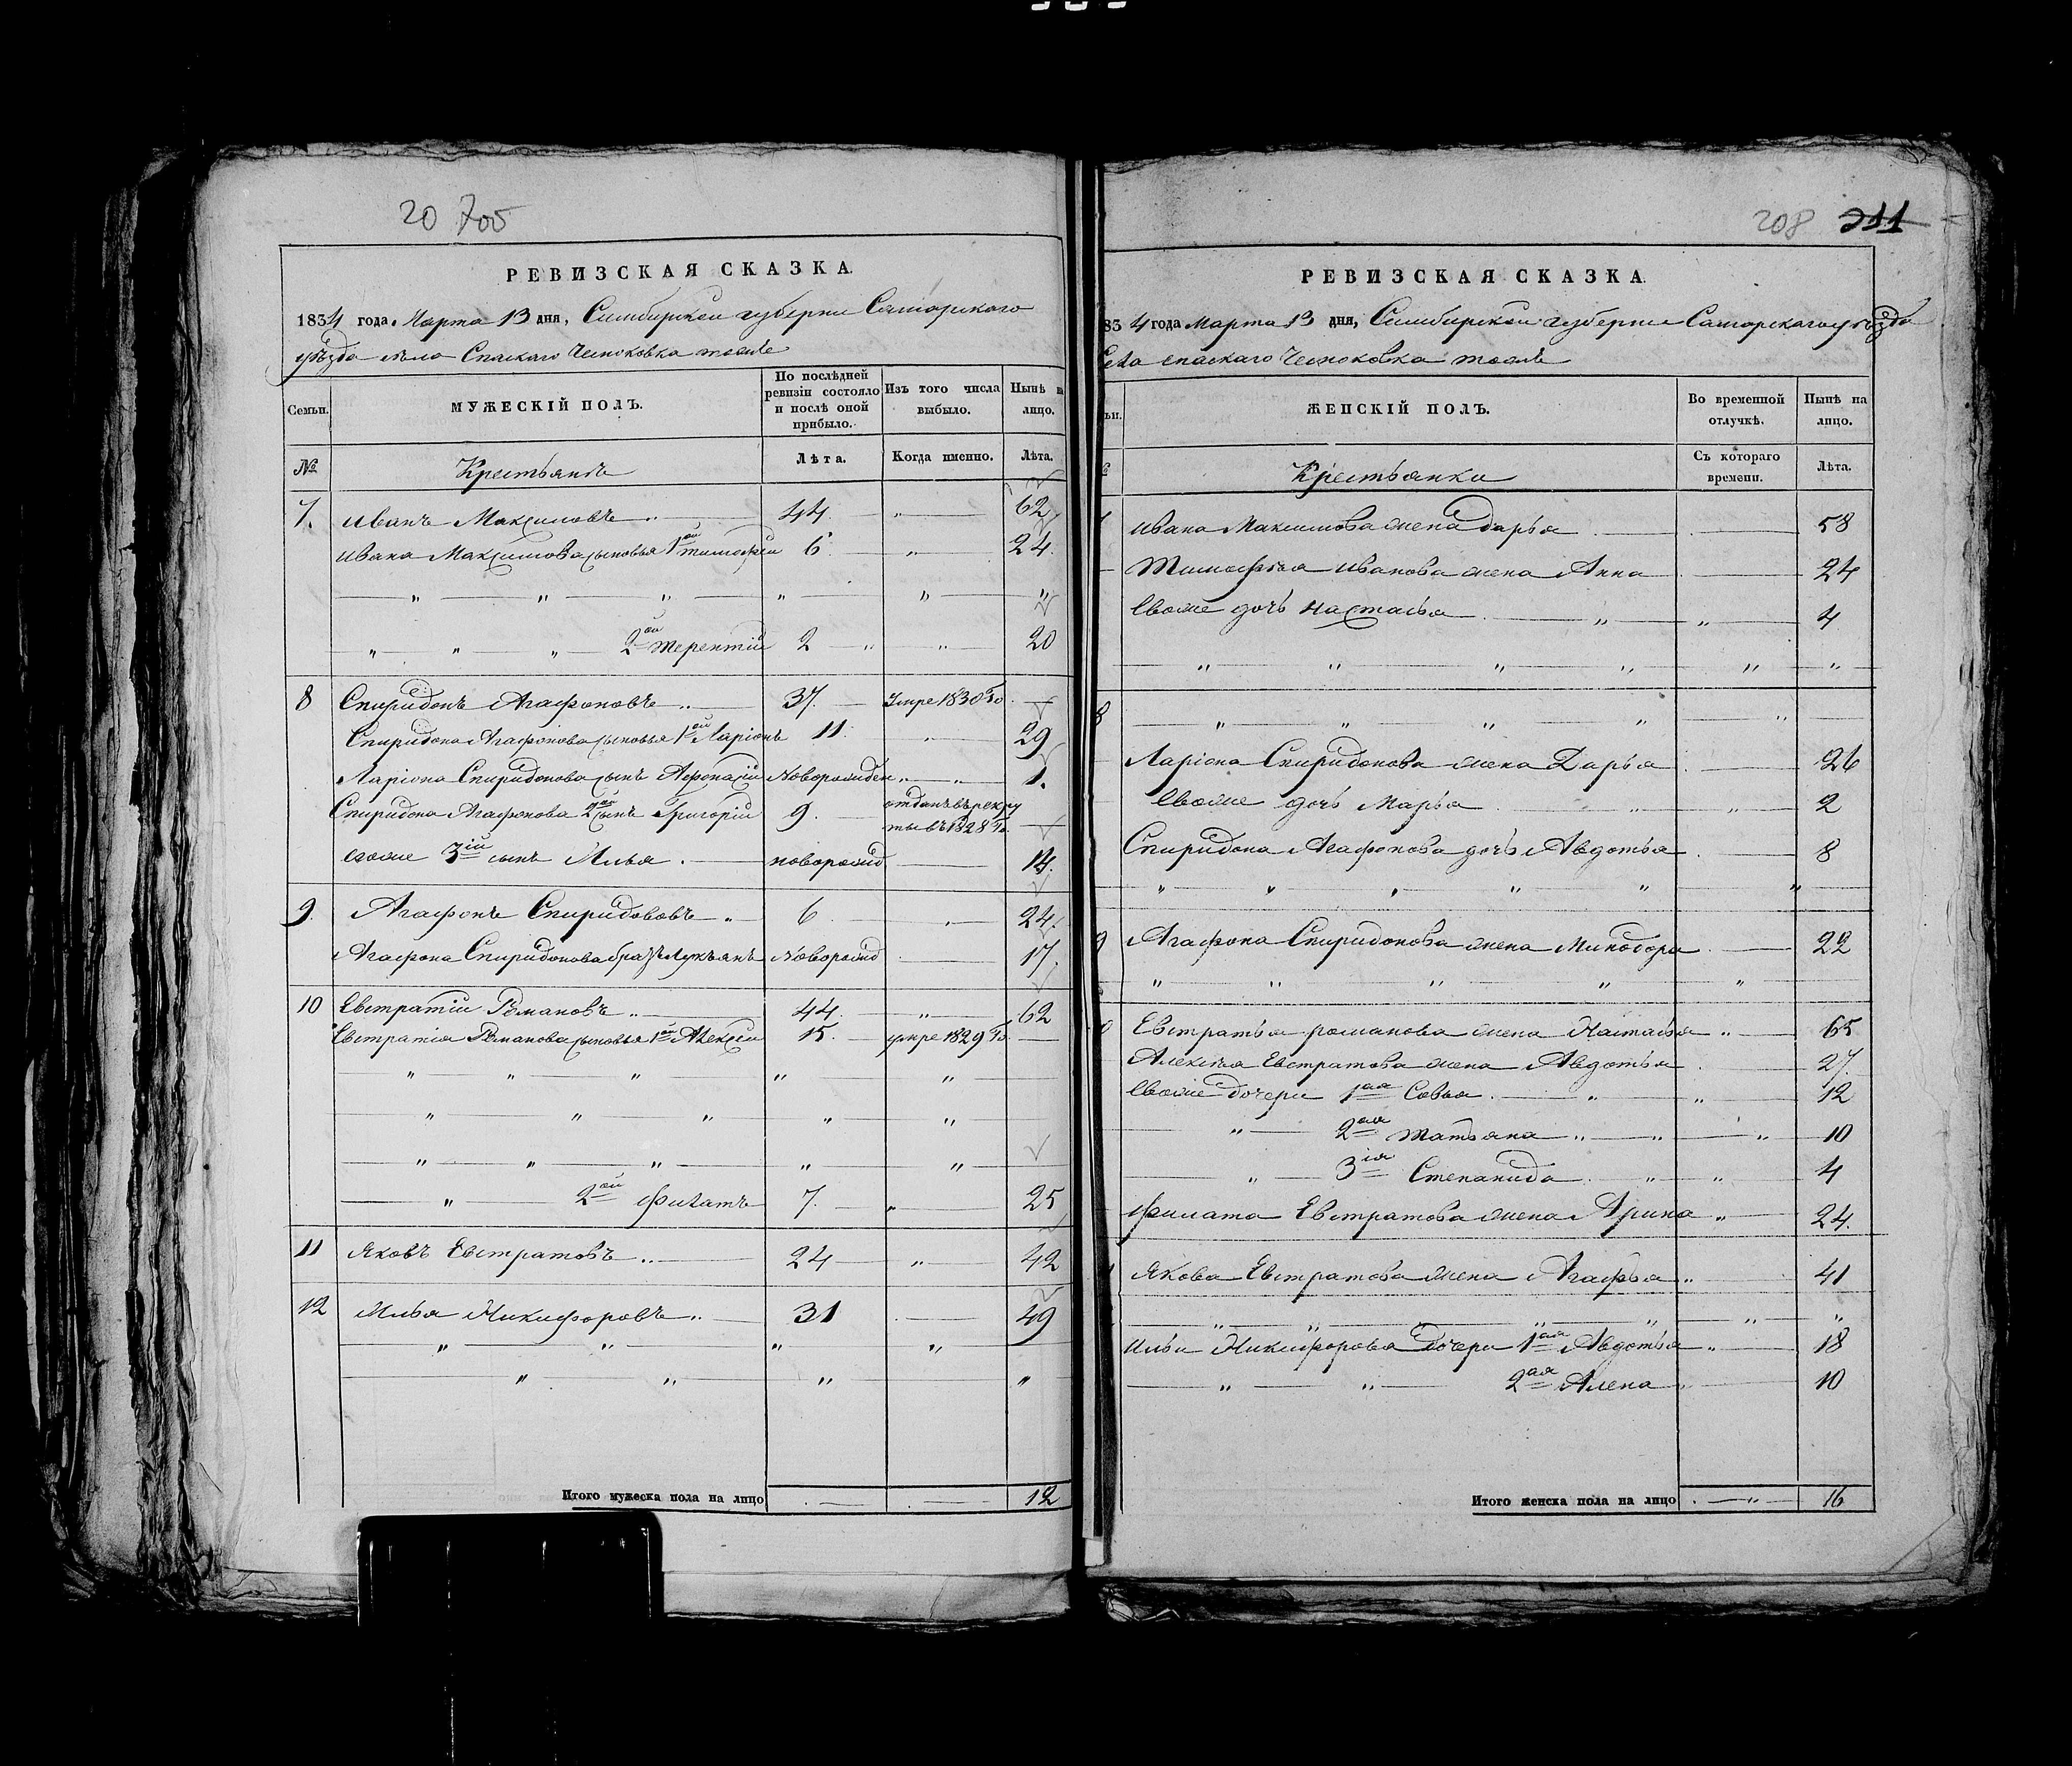 20 705
РЕВИЗСКАЯ СКАЗКА.
1834 года. Марта 13 дня, Симбирской губерни Самарского
уѣзда села Спаскаго Чесноковка тожъ
Семьи. МУЖЕСКІЙ ПОЛЪ. По послѣдней ревизіи состояло и послѣ оной прибыло. Изъ того числа выбыло. Нынѣ на лицо.
№ Крестьянъ Лѣта. Когда именно. Лѣта.
7. Иванъ Максимовъ 44. 62
Ивана Максимова сыновья 1ой тимофей 6 24.
2ой терентій 2 20
8 Спиридонъ Агафоновъ 37. Умре 1830 Го
Спиридона Агафонова сыновья 1ой Ларіонъ 11. 29
Ларіона Спиридонова сынъ Афонасій Новорожден 1.
Спиридона Агафонова 2ой сынъ Григорій 9. отданъ въ рекру
ты въ 1828 Го.
егоже 3ій сынъ Илья новорожд 14.
9. Агафонъ Спиридововъ 6 24.
Агафона Спиридонова братъ Лукьянъ Новорожд 17.
10 Евстратій Романовъ 44. 62
Евстратія Романова сыновья 1ой Алексей 15. умре 1829 Го.
2ой Филатъ 7. 25
11 Яковъ Евстратовъ 24 42
12 Илья Никифоровъ 31 49
Итого мужеска пола на лицо 12
208 211
РЕВИЗСКАЯ СКАЗКА.
834 года Марта 13 дня, Симбирской губерни Самарскаго уѣзда
села спаскаго Чесноковка тожъ
ЖЕНСКІЙ ПОЛЪ. Во временной отлучкѣ. Нынѣ на лицо.
Крестьянки Съ котораго времени. Лѣта.
Ивана Максимова жена дарья 58
Тимофѣя Иванова жена Анна 24
Евоже дочь настасья 4
Ларіона Спиридонова жена Дарья 26
Евоже дочь Марья 2
Спиридона Агафонова дочь Авдотья 8
Агафона Спиридонова жена Минодора 22
Евстратья романова жена Настасья 65
Алексѣя Евстратова жена Авдотья 27.
Евоже дочери 1ая Совья 12
2ая татьяна 10
3ія Степанида 4
Филата Евстратова жена Арина 24.
Якова Евстратова жена Агафья 41
Ильи Никифорова дочери 1ая Авдотья 18
2ая Алена 10
Итого женска пола на лицо 16